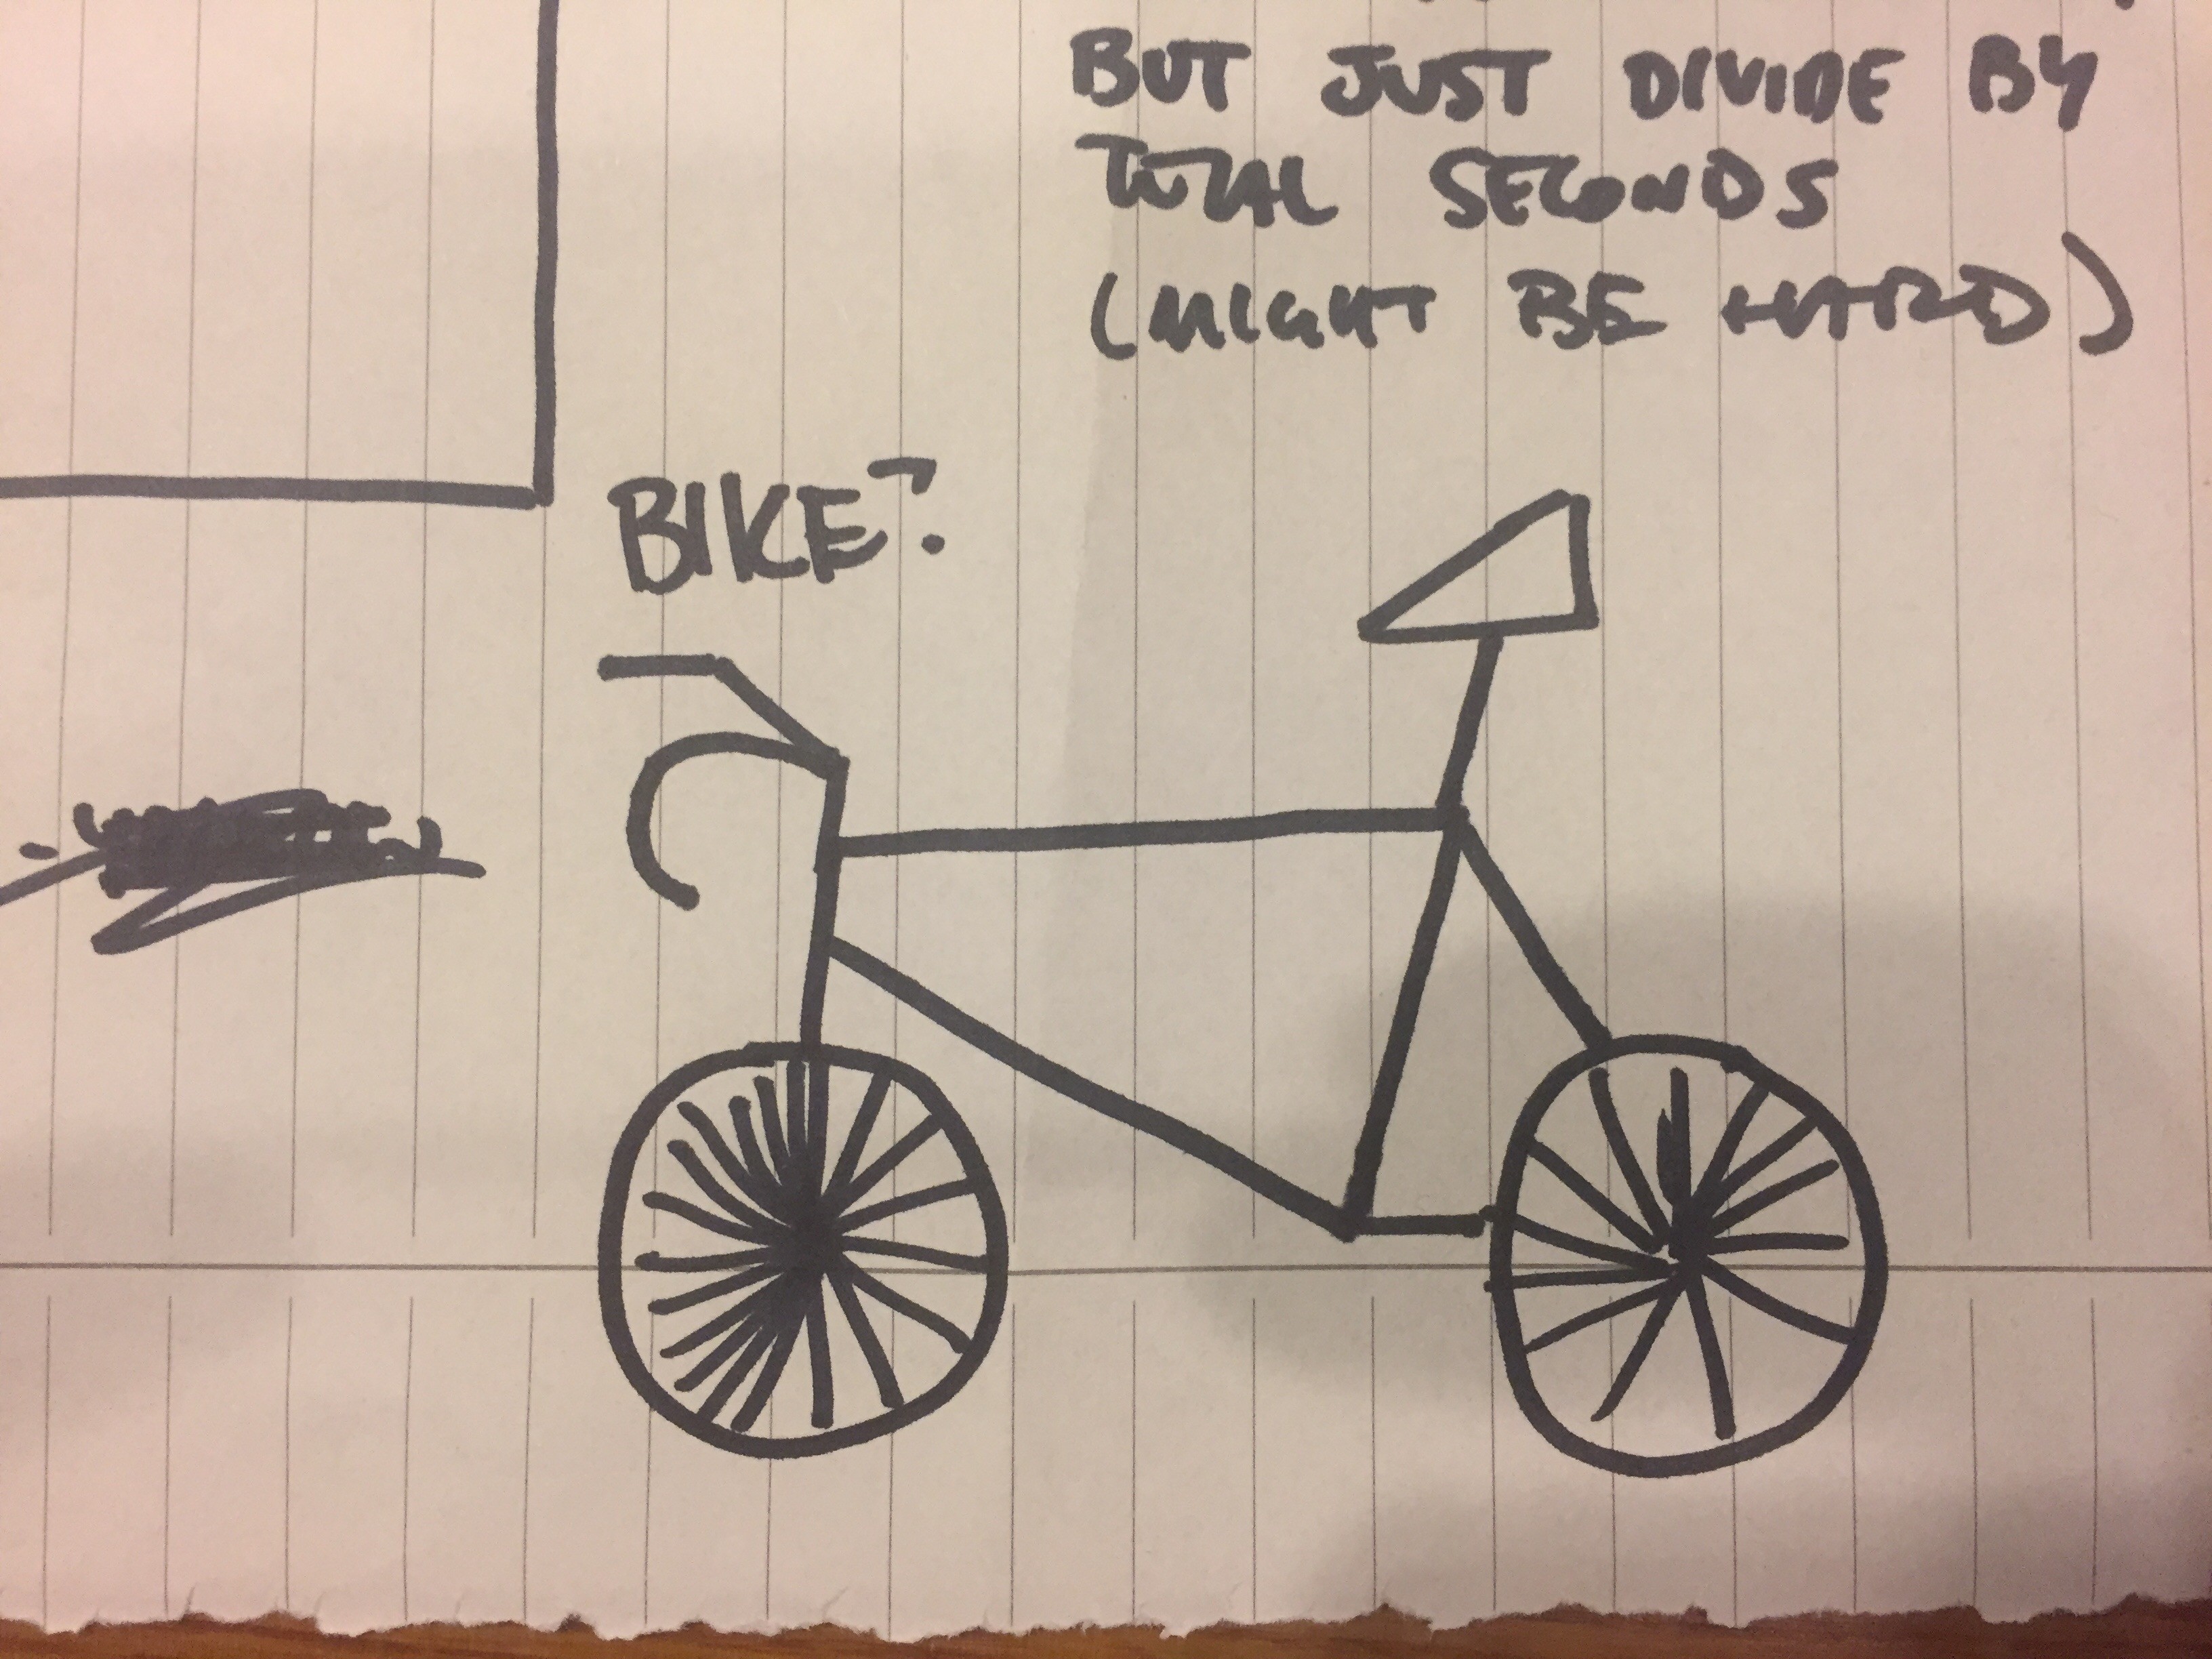 BUT JUST DIVIDE BY
TOTAL SECONDS
(MIGHT BE HARD)
BIKE?